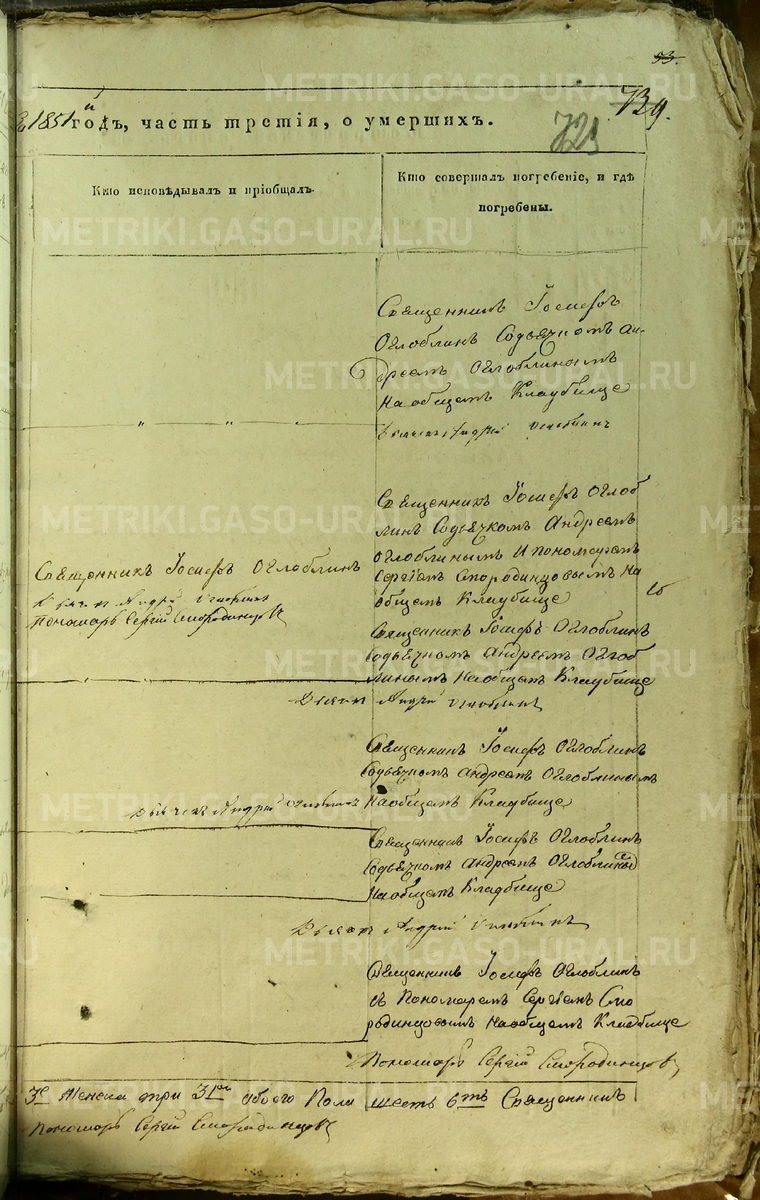 53.
739.
729
На 1851й годъ, часть третія, о умершихъ.
Кто исповѣдывалъ и пріобщалъ.
Кто совершалъ погребеніе, и гдѣ
погребены.
Священникъ Іосифъ
Оглоблинъ Содьячкомъ Ан-
дреемъ Оглоблинымъ
Наобщемъ Кладбище
Дьячекъ Андрей Оглоблинъ
Священникъ Іосифъ Оглоб
линъ Содьячкомъ Андреемъ
Оглоблинымъ И пономаремъ
Сергіемъ Смородинцовымъ На
общемъ Кладбище
Священникъ Іосифъ Оглоблинъ
Дьячекъ Андрей Оглоблинъ
Пономарь Сергій Смородинцовъ
Священникъ Іосифъ Оглоблинъ
Содьячкомъ Андреемъ Оглоб
линымъ Наобщемъ Кладбище
Дьячекъ Андрей Оглоблинъ
Священникъ Іосифъ Оглоблинъ
Содьячкомъ Андреемъ Оглоблинымъ
Наобщемъ Кладбище
Дьячекъ Андрей Оглоблинъ
Священникъ Іосифъ Оглоблинъ
Содьячкомъ Андреемъ Оглоблинымъ
Наобщемъ Кладбище
Дьячекъ Андрей Оглоблинъ
Священникъ Іосифъ Оглоблинъ
съ Пономаремъ Сергіемъ Смо
родинцовымъ Наобщемъ Кладбище
Пономарь Сергій Смородинцовъ
3е Женска три 3 обоего Пола шесть 6ть Священникъ
Пономарь Сергій Смородинцовъ
METRIKI.GASO-URAL.RU